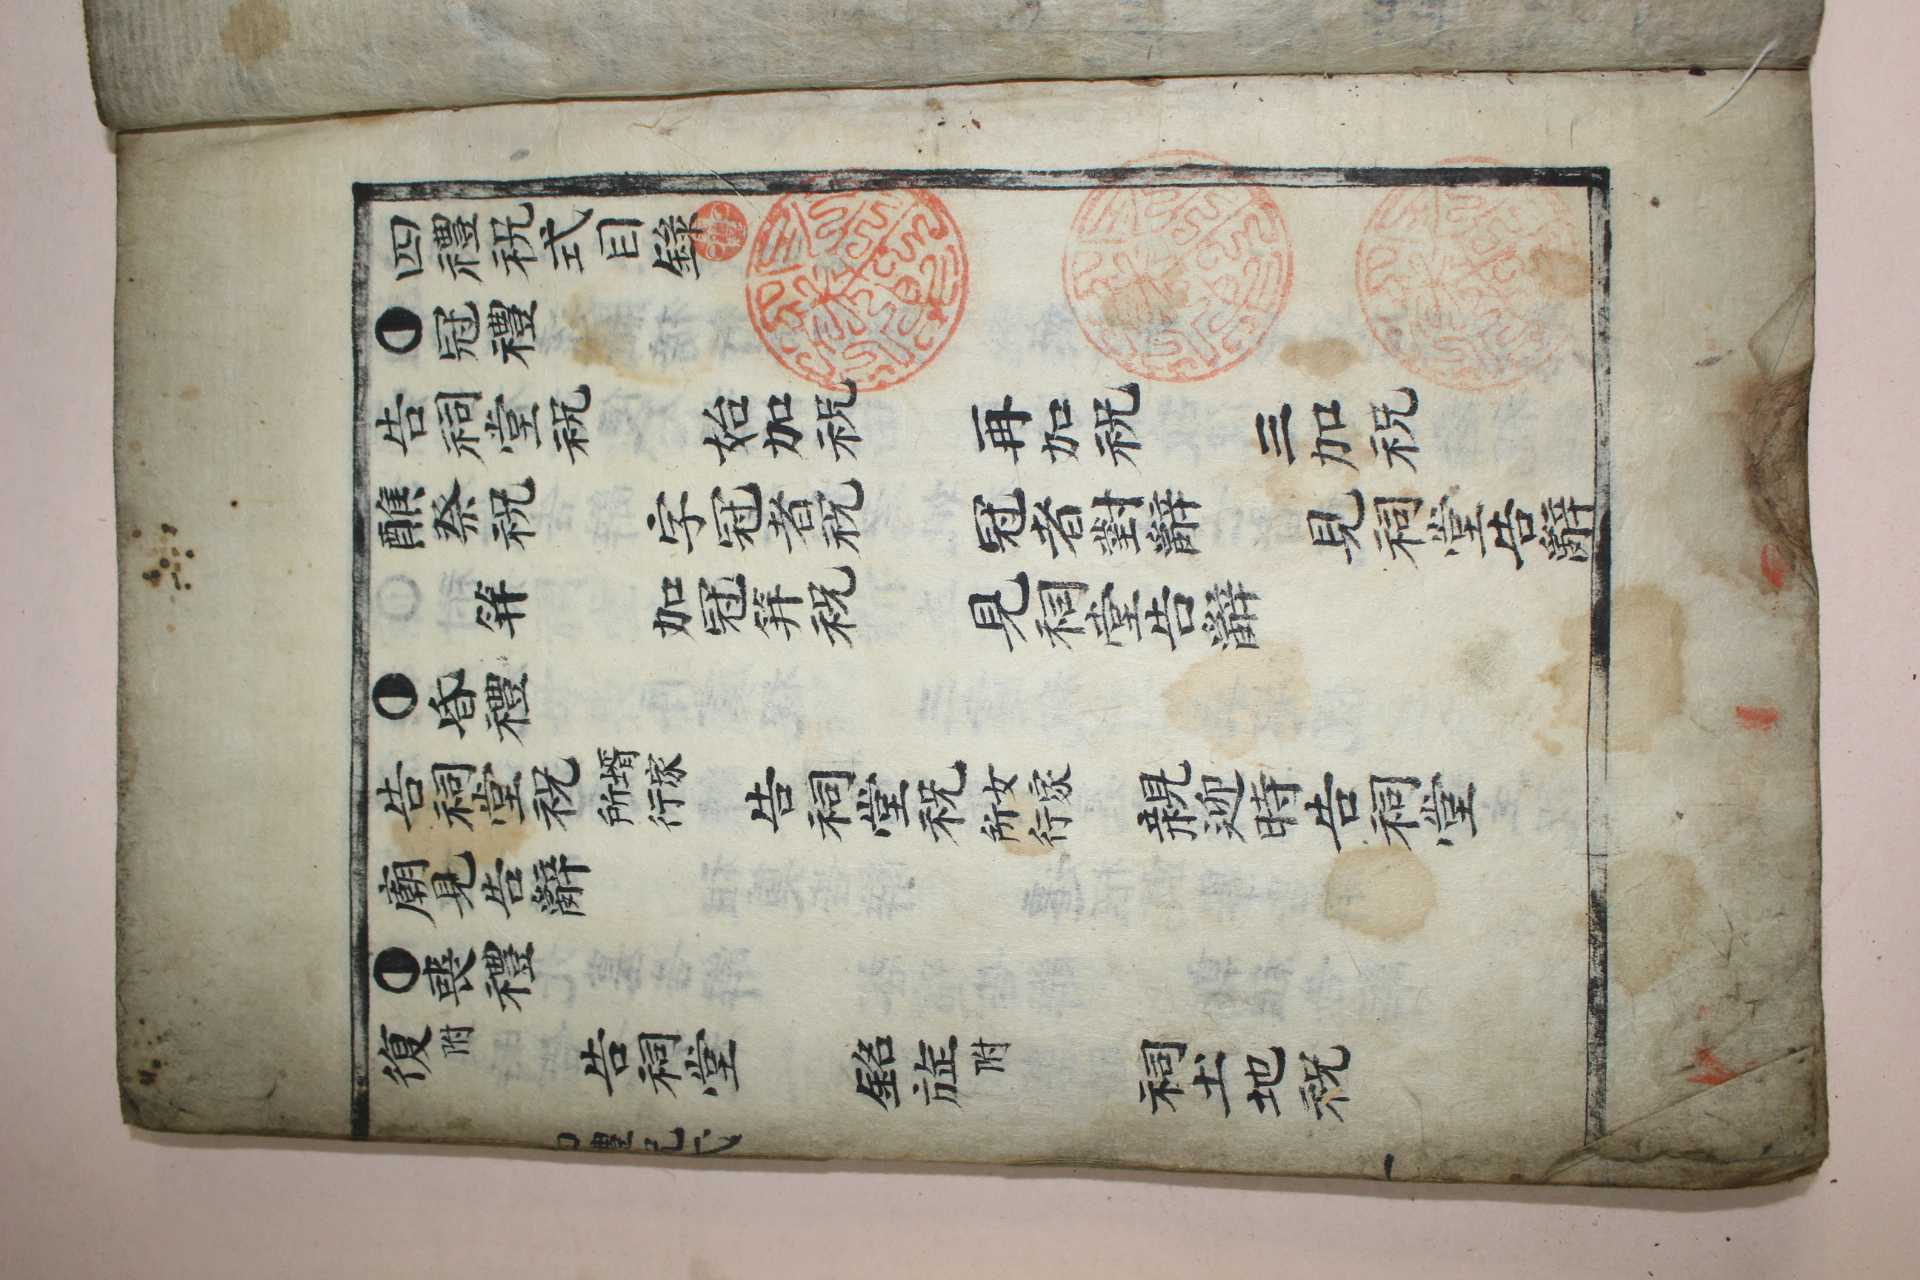 四禮祝式目錄
冠禮
告祠堂祝 始加祝 再加祝 三加祝
醮祭祝 字冠者祝 冠者對辭 見祠堂告辭
筓 加冠筓祝 見祠堂告辭
昏禮
告祠堂祝 壻家所行 告祠堂祝 女家所行 親迎時告祠堂
廟見告辭
喪禮
復 附 告祠堂 銘旌 附 祠土地祝